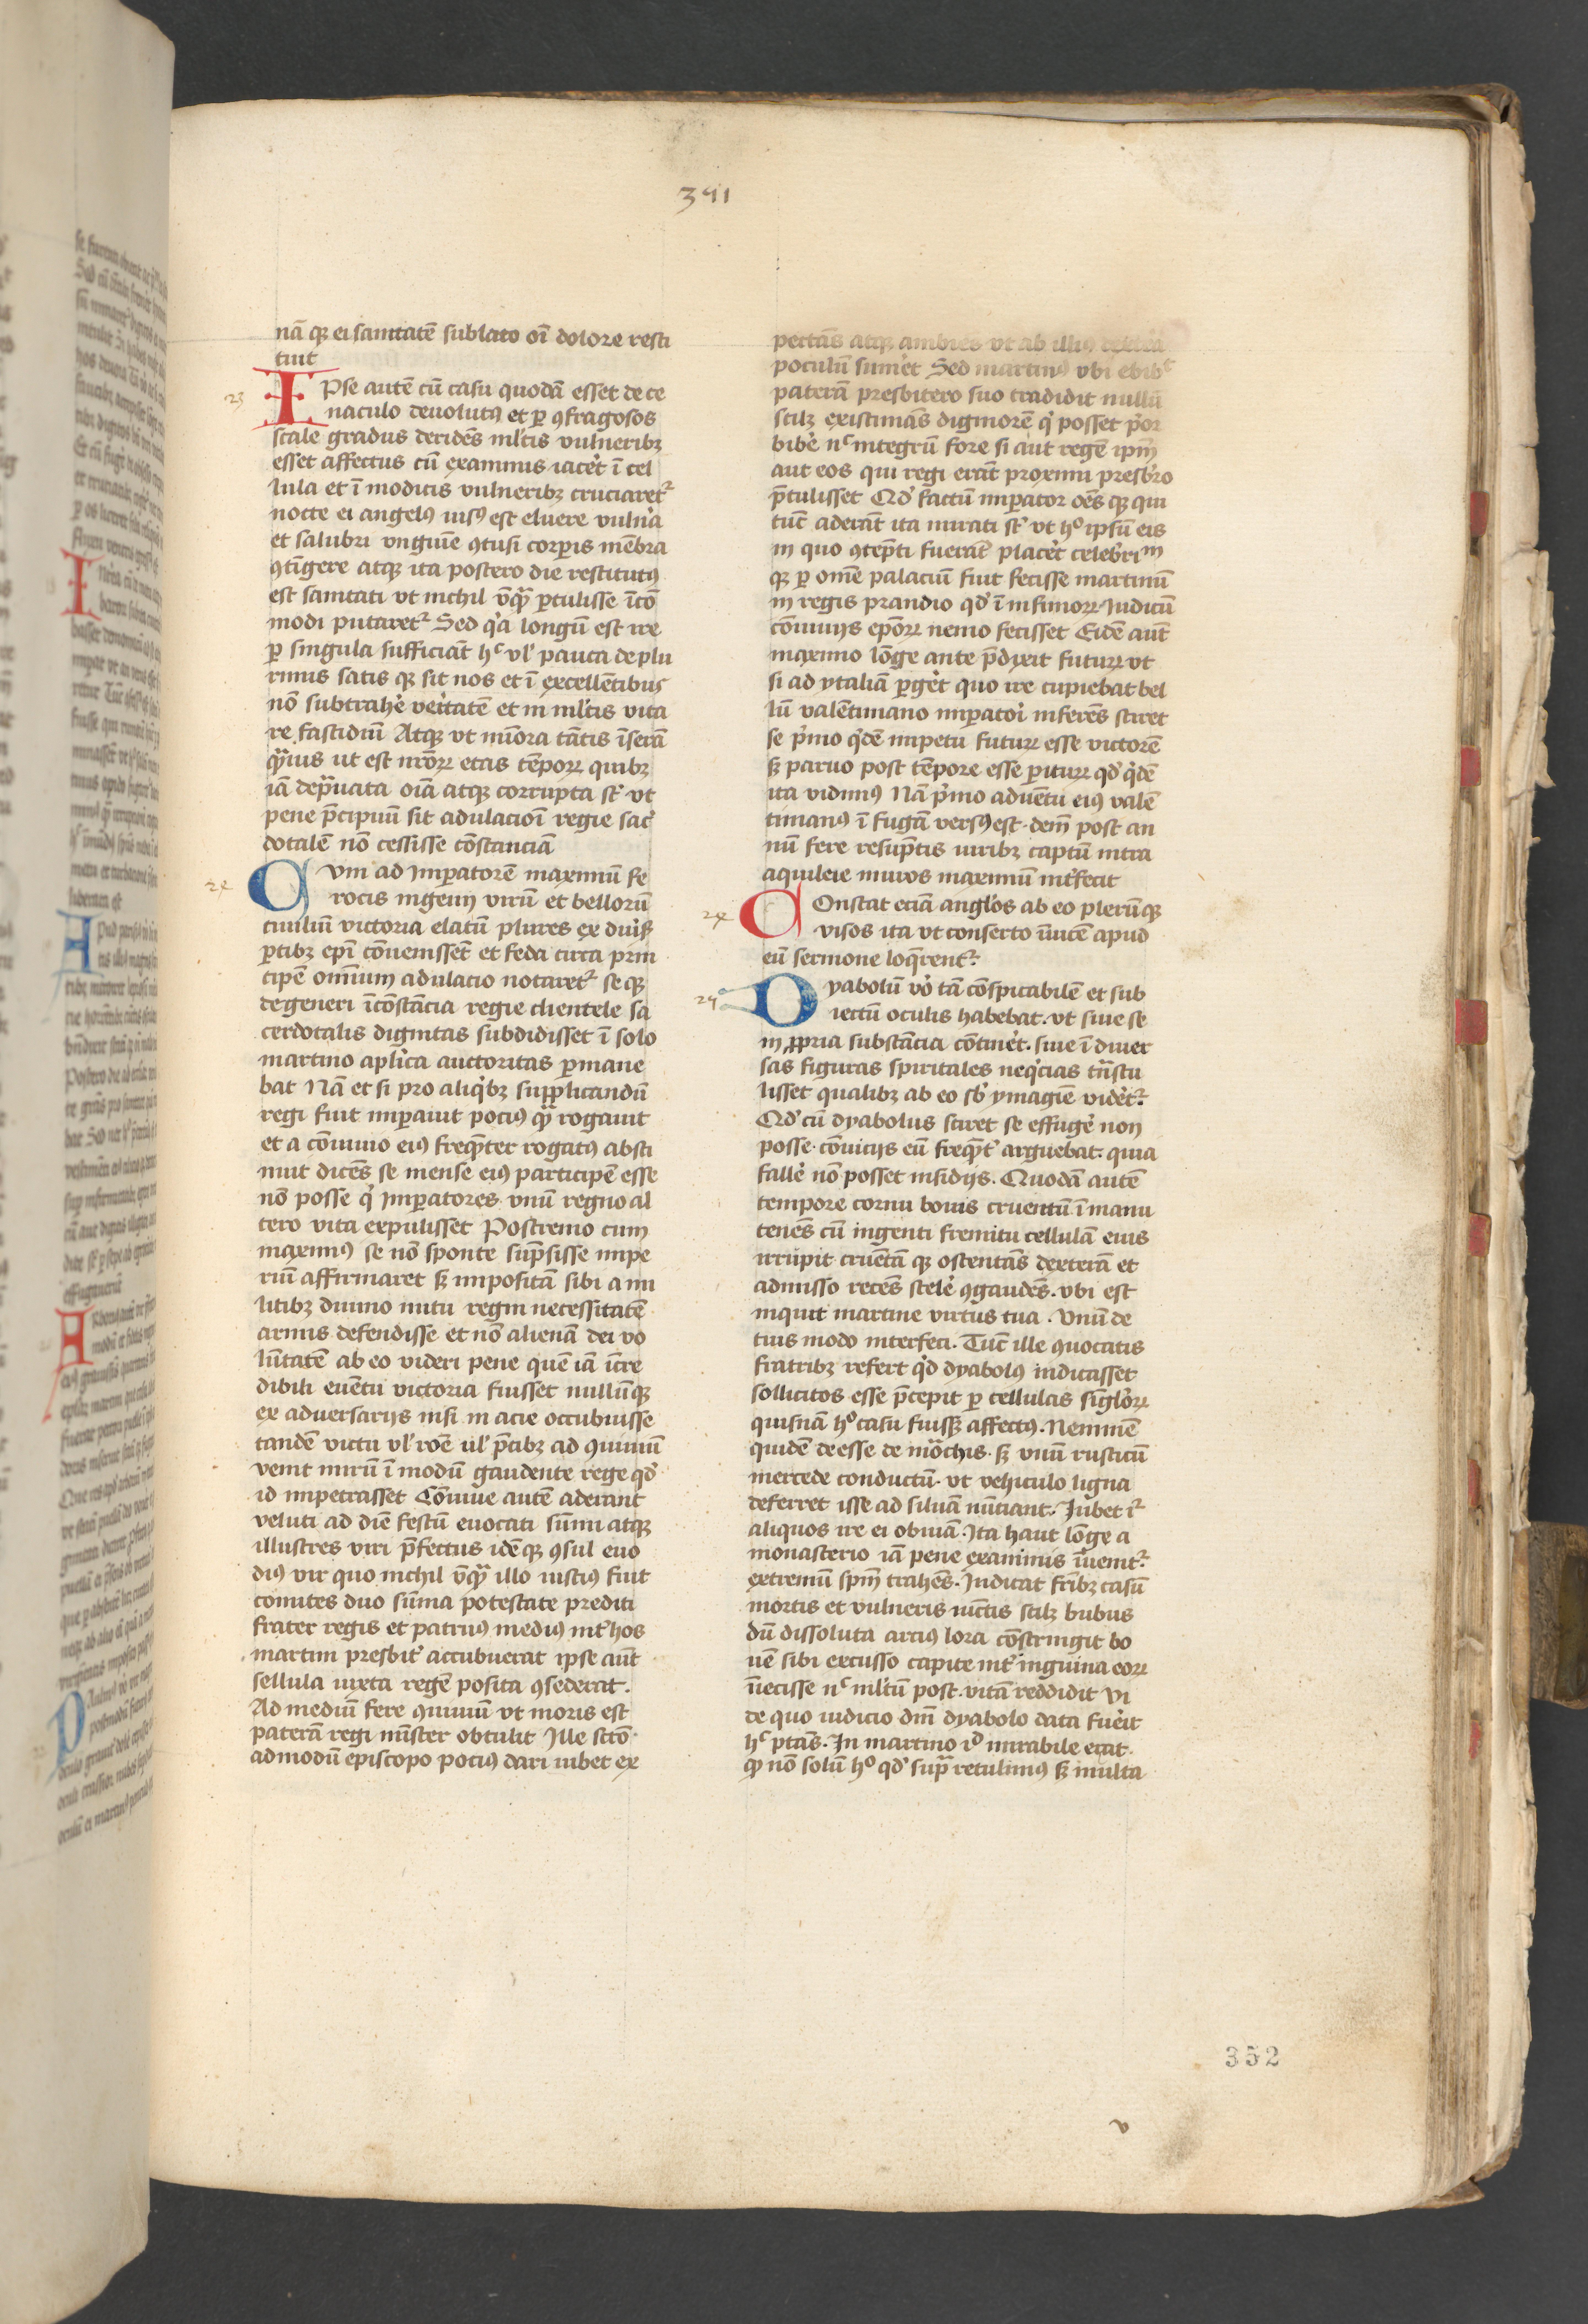 391
nā qꝫ ei sanitatē sublato oī dolore resti
tuit
23
IPse autē cū casu quodā esset de ce
naculo devolutꝰ et ꝑ ꝯfragosos
scale gradus deridēs ml'tis vulneribꝫ
esset affectus cū exanimis iacet᷑ ī cel
lula et ī modicis vulneribꝫ cruciaret᷑
nocte ei angelꝰ uisꝰ est eluere vuln᷑a
et salubri vnguīe ꝯtusi corꝑis mēbra
ꝯtīgere atqꝫ ita postero die restitutꝰ
est sanitati ut nichil vq̄ ꝑtulisse īcō
modi putaret᷑ Sed qͥa longū est ire
ꝑ singula sufficiāt hᶜ vl' pauca de plu
rimis satis qꝫ sit nos et ī excellētibus
nō subtrahe᷑ veritatē et in ml'tis vita
re fastidiū Atqꝫ ut mīora tātis īserā
qͣuis ut est nr̄oꝝ etas tēpoꝝ quibꝫ
iā depͣuata oīa atqꝫ corrupta st᷑ vt
pene p̄cipuū sit adulacioī regie sac᷑
dotalē nō cessisse cōstanciā
24
CVm ad Imꝑatorē maximū fe
rocis ingenij virū et bellorū
ciuiliū victoria elatū plures ex diuīs
ꝑtibꝫ epī cōuenissēt et feda circa prin
cipē omniū adulacio notaret᷑ se qꝫ
degeneri īcōstācia regie clientele sa
cerdotalis dignitas subdidisset ī solo
martino aplīca auctoritas ꝑmane
bat Nā et si pro aliqͥbꝫ supplicandū
regi fuit imꝑauit pociꝰ qͣ rogauit
et a cōuiuio eiꝰ freqn̄ter rogatꝰ absti
nuit dicēs se mense eiꝰ participē esse
nō posse qͥ Imꝑatores vnū regno al
tero vita expulisset Postremo cum
maximꝰ se nō sponte sūpsisse impe
riū affirmaret sꝫ impositā sibi a mi
litibꝫ diuino nutu regni necessitatē
armis defendisse et nō alienā dei vo
lūtatē ab eo videri pene quē iā īcre
dibili euētu victoria fuisset nullūqꝫ
ex adversarijs nisi in acie occubuisse
tandē victꝰ vl' roē ul' p̄cibꝫ ad ꝯuiuiū
venit mirū ī modū gaudente rege qd᷑
id impetrasset Cōuiue autē aderant
veluti ad diē festū euocati sūmi atqꝫ
illustres viri p̄fectus idē qꝫ ꝯsul euo
diꝰ vir quo nichil vq̄ illo iustiꝰ fuit
comites duo sūma potestate prediti
frater regis et patruꝰ mediꝰ int᷑ hos
martini presbit᷑ accubuerat ipse aūt
sellula iuxta regē posita ꝯsederat.
Ad mediū fere ꝯuiuiū vt moris est
paterā regi mīster obtulit Ille sctō
admodū episcopo pociꝰ dari iubet ex
pectās atqꝫ ambies vt ab illiꝰ dextera
poculū sumeret Sed martinꝰ vbi ebibit
paterā presbitero suo tradidit nullū
scilꝫ existimās digniorē qͥ posset pͥor
bibe᷑ nᶜ integrū fore si aut regē ipm̄
aut eos qui regi erāt proximi presbr̄o
p̄tulisset Qd᷑ factū imꝑator oēs qꝫ qui
tūc aderāt ita mirati st᷑ vt hᵒ ipsū eis
in quo ꝯtēpti fuerāt placet᷑ celebrīᵐ
qꝫ ꝑ omē palaciū fuit fecisse martinū
in regis prandio qd᷑ ī infimoꝝ Iudicū
cōuiuijs epōꝝ nemo fecisset Eidē aūt
maximo lōge ante p̄dixit futuꝝ vt
si ad ytaliā ꝑget᷑ quo ire cupiebat bel
lū valētiniano imꝑatoī inferēs sciret
se pͥmo qͥdē impetu futuꝝ esse victorē
sꝫ paruo post tēpore esse ꝑituꝝ qd᷑ qͥdē
ita vidimꝰ Nā pͥmo aduētu eiꝰ valē
tinianꝰ ī fugā versꝰ est. dein̄ post an
nū fere resūptis uiribꝫ captū intra
aquileie muros maximū int᷑fecit
24
COnstat eciā anglos ab eo plerūqꝫ
visos ita vt conserto īuicē apud
eū sermone loqͥrent᷑.
25
DYabolū vo᷑ tā cōspicabilē et sub
iectū oculis habebat. vt siue se
in ꝓpria substācia cōtinet᷑. siue ī diuer
sas figuras spiritales neqͥcias tn̄stu
lisset qualibꝫ ab eo sb᷑ ymagīe videt᷑.
Qd᷑ cū dyabolus sciret se effuge᷑ non
posse. cōuicijs eū freqn̄t᷑ arguebat. quia
falle᷑ nō posset insidijs. Quodā autē
tempore cornu bouis cruentū ī manu
tenēs cū ingenti fremitu cellulā eius
irrupit cruētā qꝫ ostentās dexterā et
admisso recēs scele᷑ ꝯgaudēs. vbi est
inquit martine virtus tua. Vnū de
tuis modo interfeci. Tūc ille ꝯuocatis
fratribꝫ refert qͥd dyabolꝰ indicasset
sollicitos esse p̄cepit ꝑ cellulas singl᷑oꝝ
quisnā hᵒ casu fuisset affectꝰ. Neminē
quidē deesse de mōchis. sꝫ vnū rusticū
mercede conductū. vt vehiculo ligna
deferret isse ad siluā nūtiant. Iubet iᷣ
aliquos ire ei obuiā. Ita haut lōge a
monasterio iā pene exanimis īuenit᷑.
extremū spm̄ trahēs. Indicat fr̄ibꝫ casū
mortis et vulneris iūctis scilꝫ bubus
dū dissoluta arciꝰ lora cōstringit bo
uē sibi excusso capite int᷑ inguina eoꝝ
īiecisse nᶜ ml'tū post. vitā reddidit Vi
de quo iudicio dn̄i dyabolo data fuerit
hᶜ ptās. In martino iᵒ mirabile erat.
qꝫ nō solū hᵒ qd᷑ supͣ retulimꝰ sꝫ multa
352
v